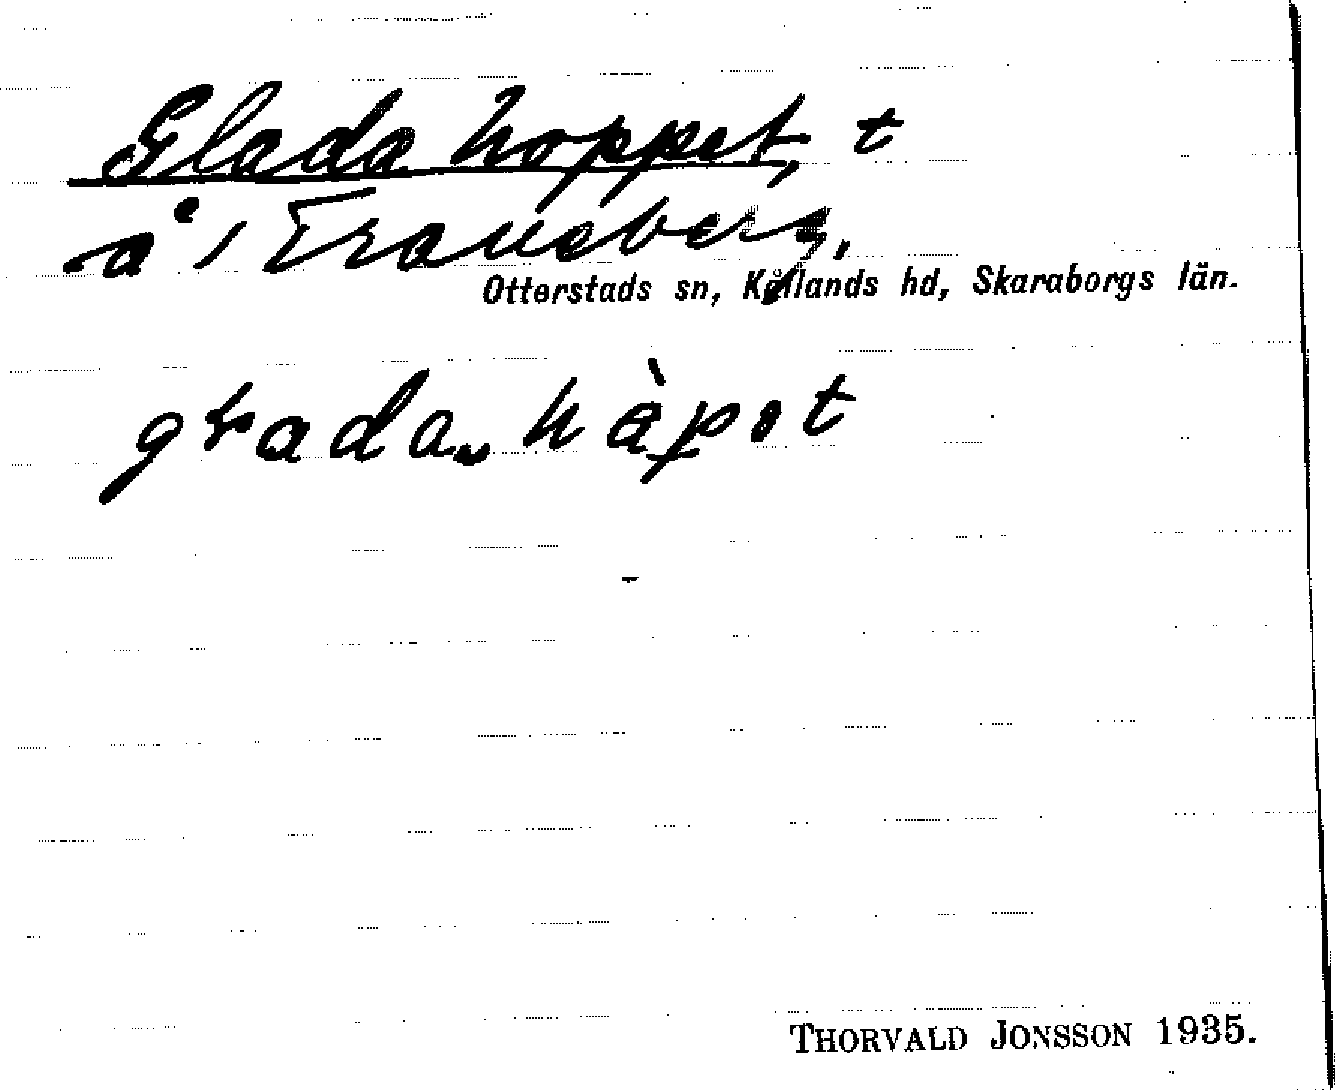 Glada hoppet, t
å 1 Traneberg,
Otterstads sn, Kållands hd, Skaraborgs län.
grada hàpet
THORVALD JONSSON 1935.